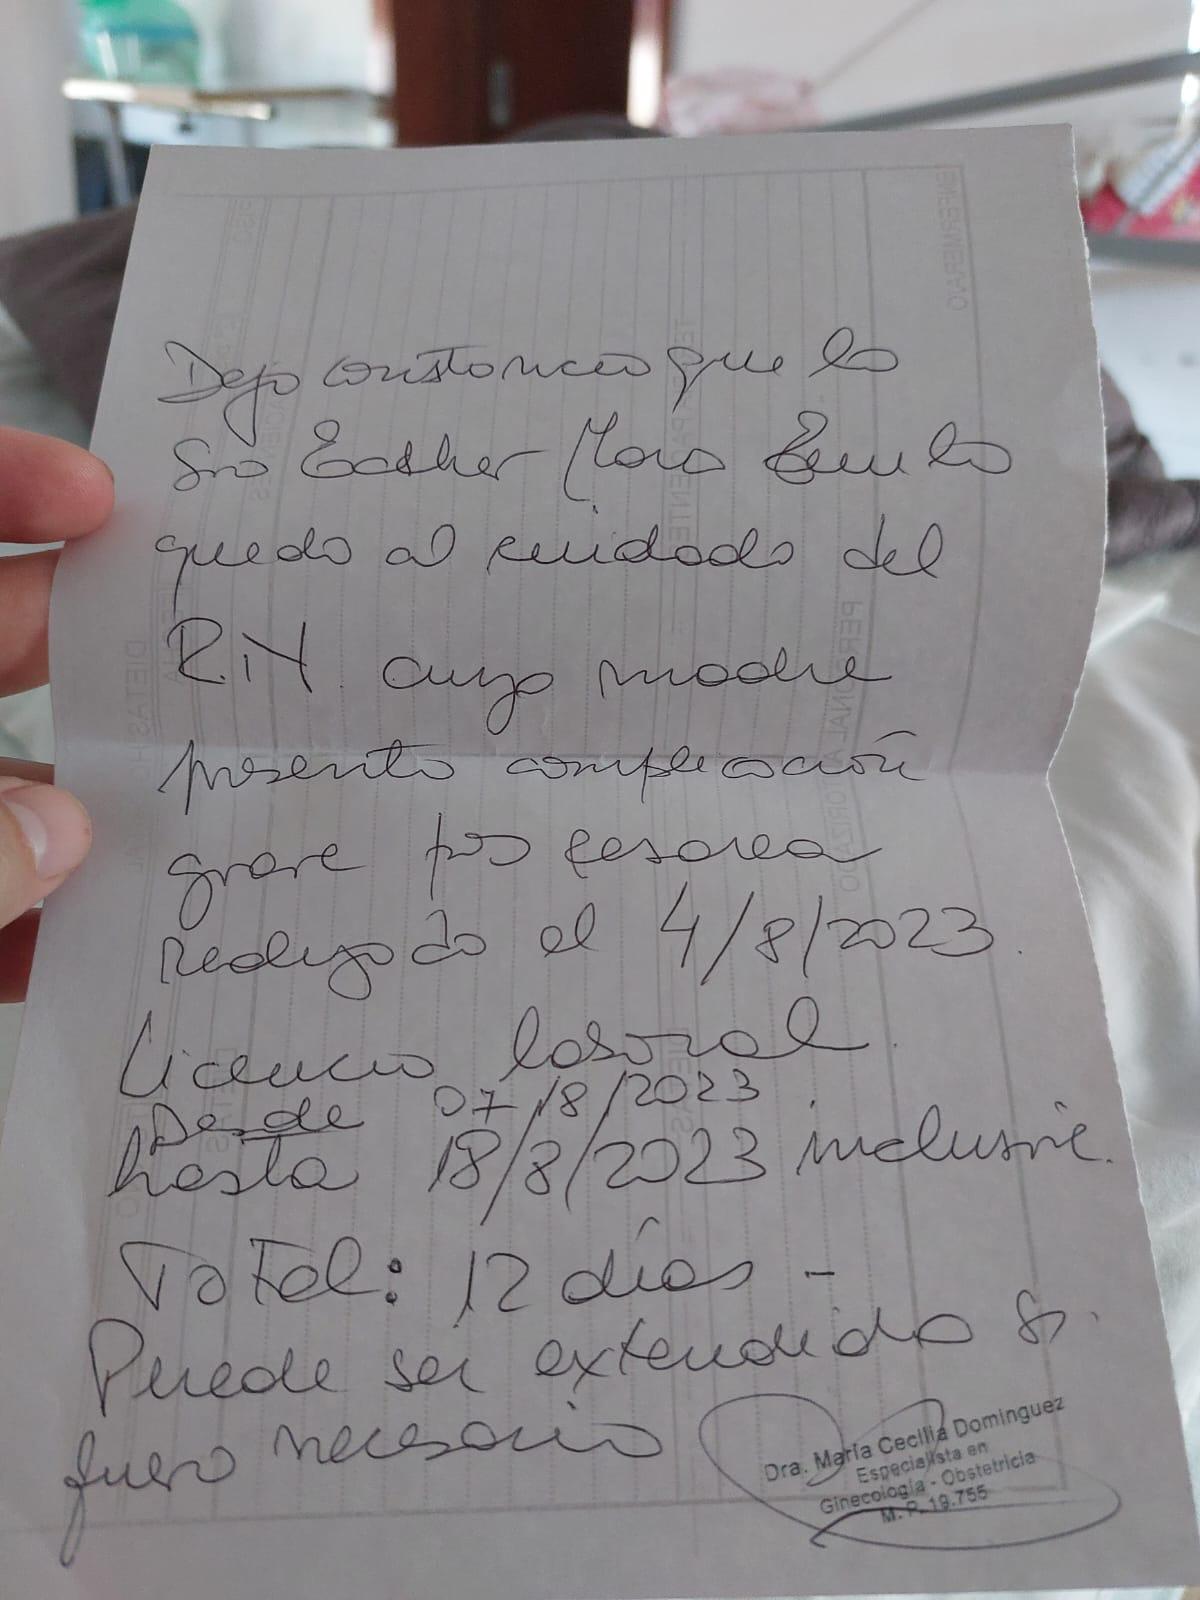 Dejo constancia que la
Sra Esther Mora
queda al cuidado del
R.N. cuya madre
presento complicación
grave pos cesarea
realizada el 4/8/2023.
Licencia laboral.
Desde 07/8/2023
hasta 18/8/2023 inclusive.
Total: 12 días -
Puede ser extendida si
fuera necesario
Dra. María Cecilia Dominguez
Especialista en
Ginecología - Obstetricia
M. P. 19.755